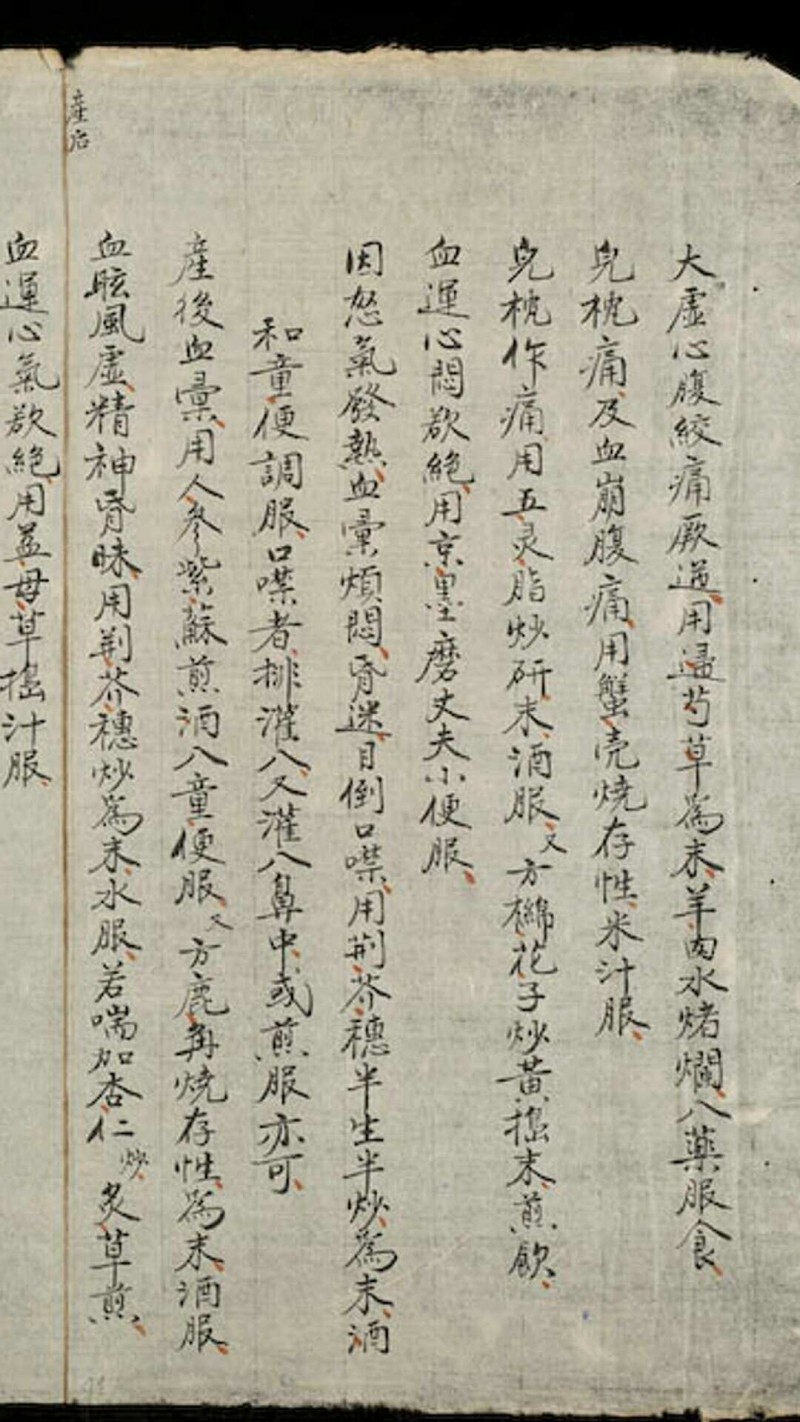 大虚心腹絞痛厥逆用逼芍草為末羊肉水烤爛入藥服食
皃枕痛及血崩腹痛用蟹壳燒存性米汁服
皃枕作痛用五灵脂炒研末酒服又方棉花子炒黃搗末煎飲
血運心悶欲絕用京墨磨丈夫小便服
因怒氣發熱血彙煩悶昏迷目倒口噤用荆芥穗半生半炒為末酒
和童便調服口噤者排灌入又灌入鼻中或煎服亦可
産後血彙用人參紫蘇煎酒入童便服又方鹿角燒存性為末酒服
血眩風虛精神昏昧用荆芥穗炒為末水服若喘加杏仁炒炙草煎
産后
血運心氣欲絕用益母草搗汁服